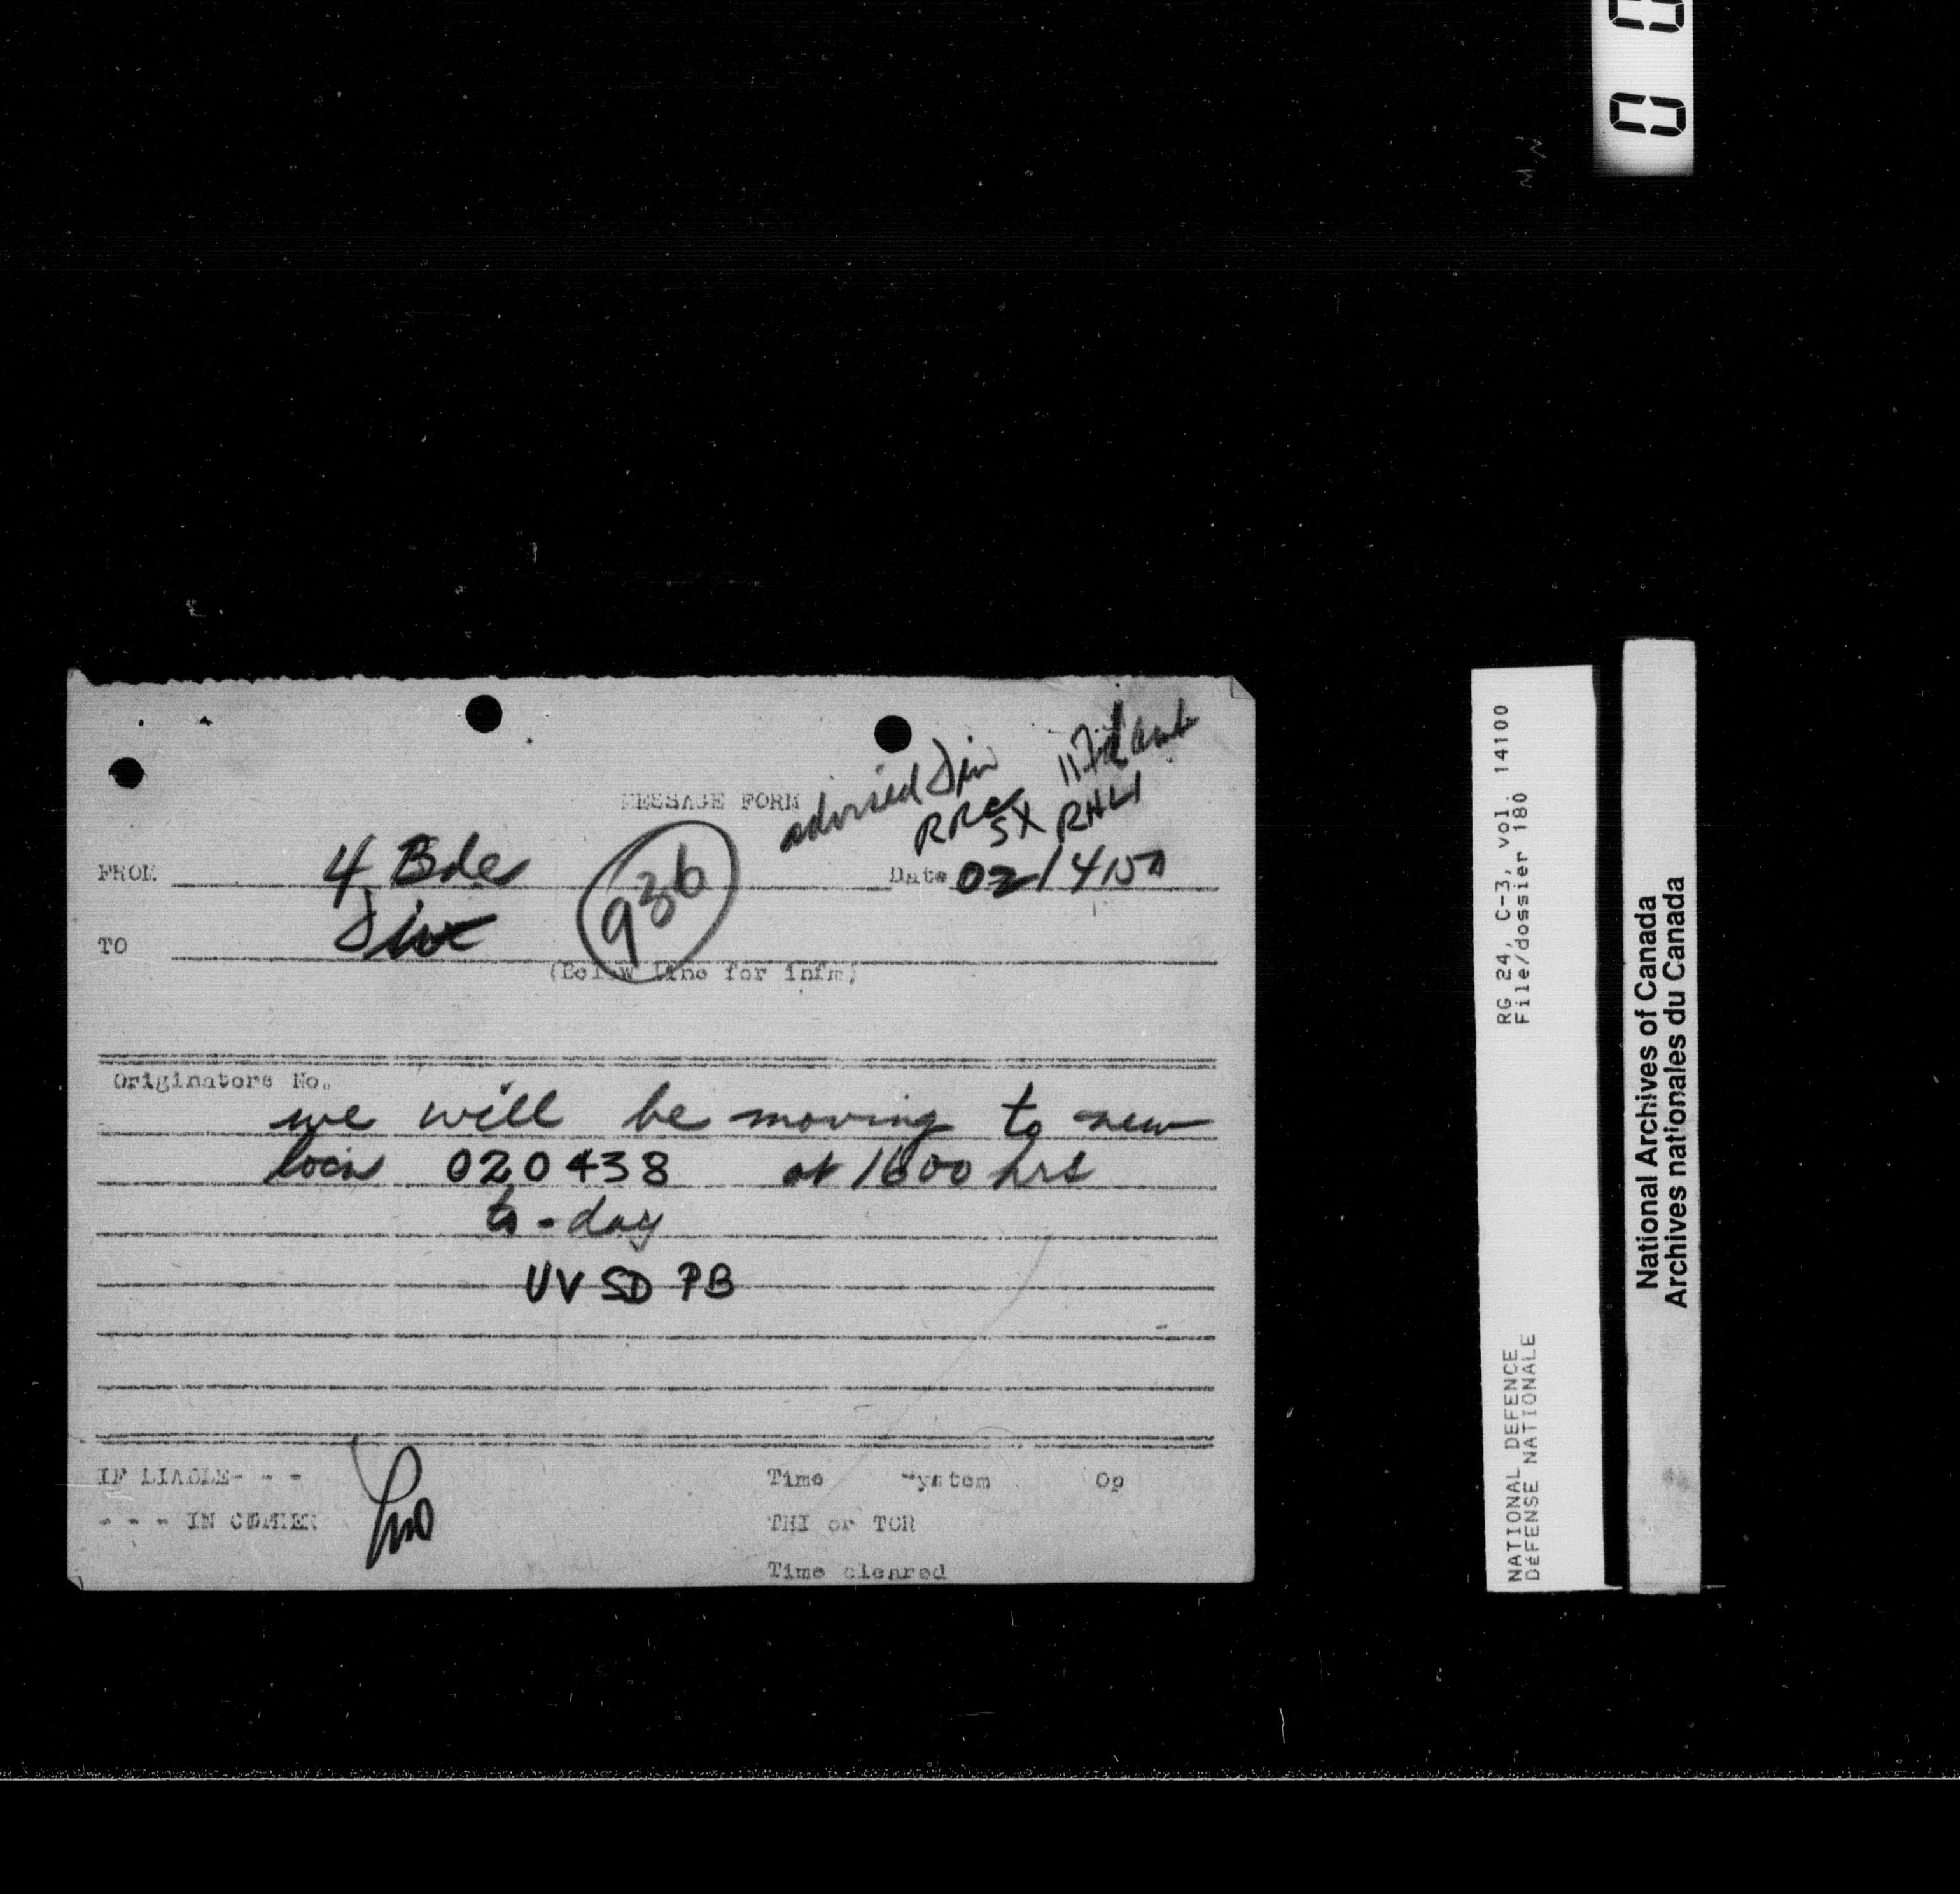 MESSAGE FORM
advised Div 11 Fd Amb
RRC SX RHLI
FROM 4 Bde 936 Date 02/4150
TO Div
(Below line for infm)
Originators No.
we will be moving to new
locn 020438 at 1600 hrs
to-day
UV SD PB
IF LIABLE- - -
- - - IN CIPHER
Time System Op
THI or TOR
Time cleared
RG 24, C-3, vol. 14100
File/dossier 180
NATIONAL DEFENCE
DéFENSE NATIONALE
National Archives of Canada
Archives nationales du Canada